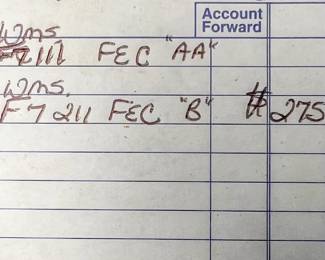 Account
Forward
Wms
F7111 FEC "AA"
Wms.
F7211 FEC "B" # 275